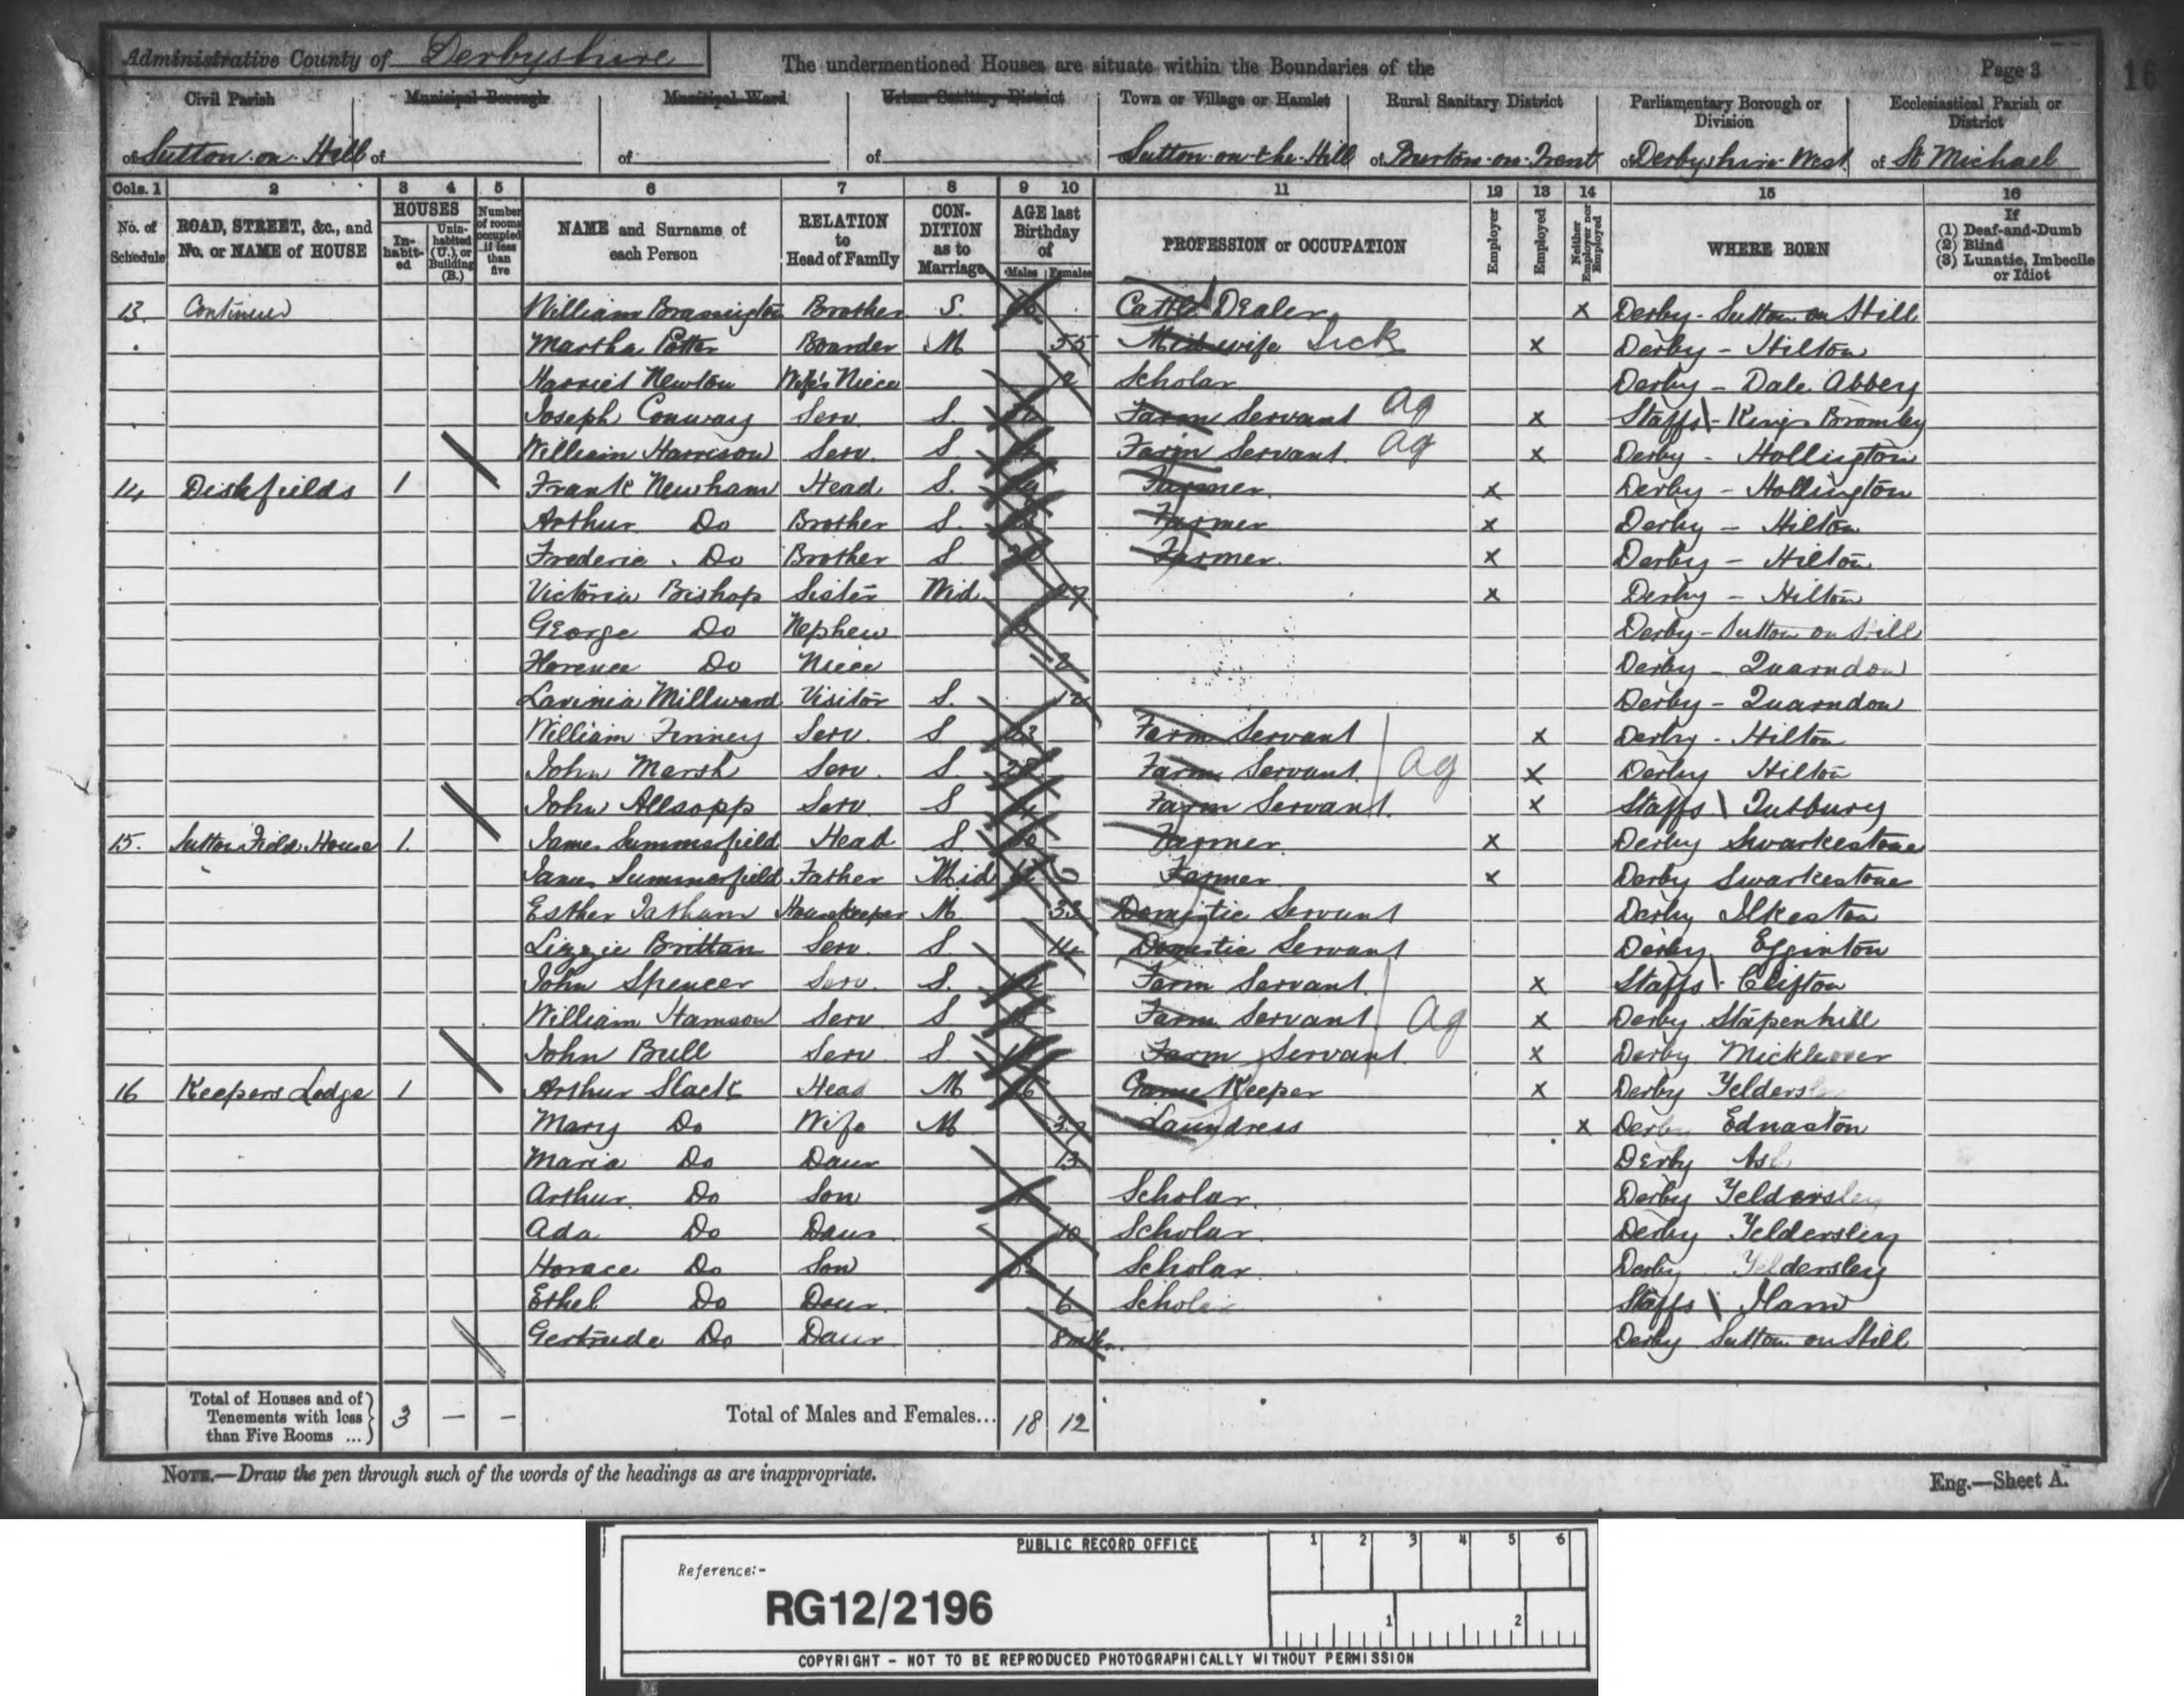 Administrative County of Derbyshire The undermentioned Houses are situate within the Boundaries of the Page 3
16
Civil Parish Municipal Borough Municipal Ward Urban Sanitary District Town or Village or Hamlet Rural Sanitary District Parliamentary Borough or Division Ecclesiastical Parish or District
of Sutton on Hill of of of Sutton-on-the-Hill of Burton-on-Trent of Derbyshire West of St Michael
Cols. 1 2 3 4 5 6 7 8 9 10 11 12 13 14 15 16
No. of Schedule ROAD, STREET, &c., and No. or NAME of HOUSE HOUSES Inhabited Uninhabited (U.), or Building (B.) Number of rooms occupied if less than five NAME and Surname of each Person RELATION to Head of Family CONDITION as to Marriage AGE last Birthday of Males Females PROFESSION or OCCUPATION Employer Employed Neither Employer nor Employed WHERE BORN If (1) Deaf-and-Dumb (2) Blind (3) Lunatic, Imbecile or Idiot
13. Continued William Brassington Brother S. Cattle Dealer x Derby - Sutton on Hill
Martha Potter Boarder M 55 Midwife Sick x Derby - Hilton
Harriet Newton Wife's Niece Scholar Derby - Dale Abbey
Joseph Conway Serv. S. Farm Servant Ag x Staffs - Kings Bromley
William Harrison Serv. S. Farm Servant Ag x Derby - Hollington
14 Dishfields 1 Frank Newham Head S. Farmer x Derby - Hollington
Arthur Do Brother S. Farmer x Derby - Hilton
Frederic Do Brother S Farmer x Derby - Hilton
Victoria Bishop Sister Wid. 27 x Derby - Hilton
George Do Nephew Derby - Sutton on Hill
Florence Do Niece 2 Derby - Quarndon
Lavinia Millward Visitor S. 12 Derby - Quarndon
William Finney Serv. S Farm Servant x Derby - Hilton
John Marsh Serv. S. Farm Servant Ag x Derby Hilton
John Allsopp Serv. S Farm Servant x Staffs Tutbury
15. Sutton Field House 1. James Summerfield Head S Farmer x Derby Swarkestone
James Summerfield Father Wid Farmer x Derby Swarkestone
Esther Tatham Housekeeper M 33 Domestic Servant Derby Ilkeston
Lizzie Brittan Serv. S. 14 Domestic Servant Derby Egginton
John Spencer Serv. S. Farm Servant x Staffs Clifton
William Hamson Serv S Farm Servant Ag x Derby Stapenhill
John Bull Serv S. Farm Servant x Derby Mickleover
16 Keepers Lodge 1 Arthur Slack Head M Game Keeper x Derby Yeldersley
Mary Do Wife M 37 Laundress x Derby Ednaston
Maria Do Daur 13 Derby
Arthur Do Son Scholar Derby Yeldersley
Ada Do Daur 10 Scholar Derby Yeldersley
Horace Do Son Scholar Derby Yeldersley
Ethel Do Daur. 6 Scholar Staffs Ilam
Gertrude Do Daur 8 mths. Derby Sutton on Hill
Total of Houses and of Tenements with less than Five Rooms ... 3 — — Total of Males and Females... 18 12
NOTE.—Draw the pen through such of the words of the headings as are inappropriate. Eng.—Sheet A.
PUBLIC RECORD OFFICE 1 2 3 4 5 6
Reference:-
RG12/2196
1 2
COPYRIGHT - NOT TO BE REPRODUCED PHOTOGRAPHICALLY WITHOUT PERMISSION